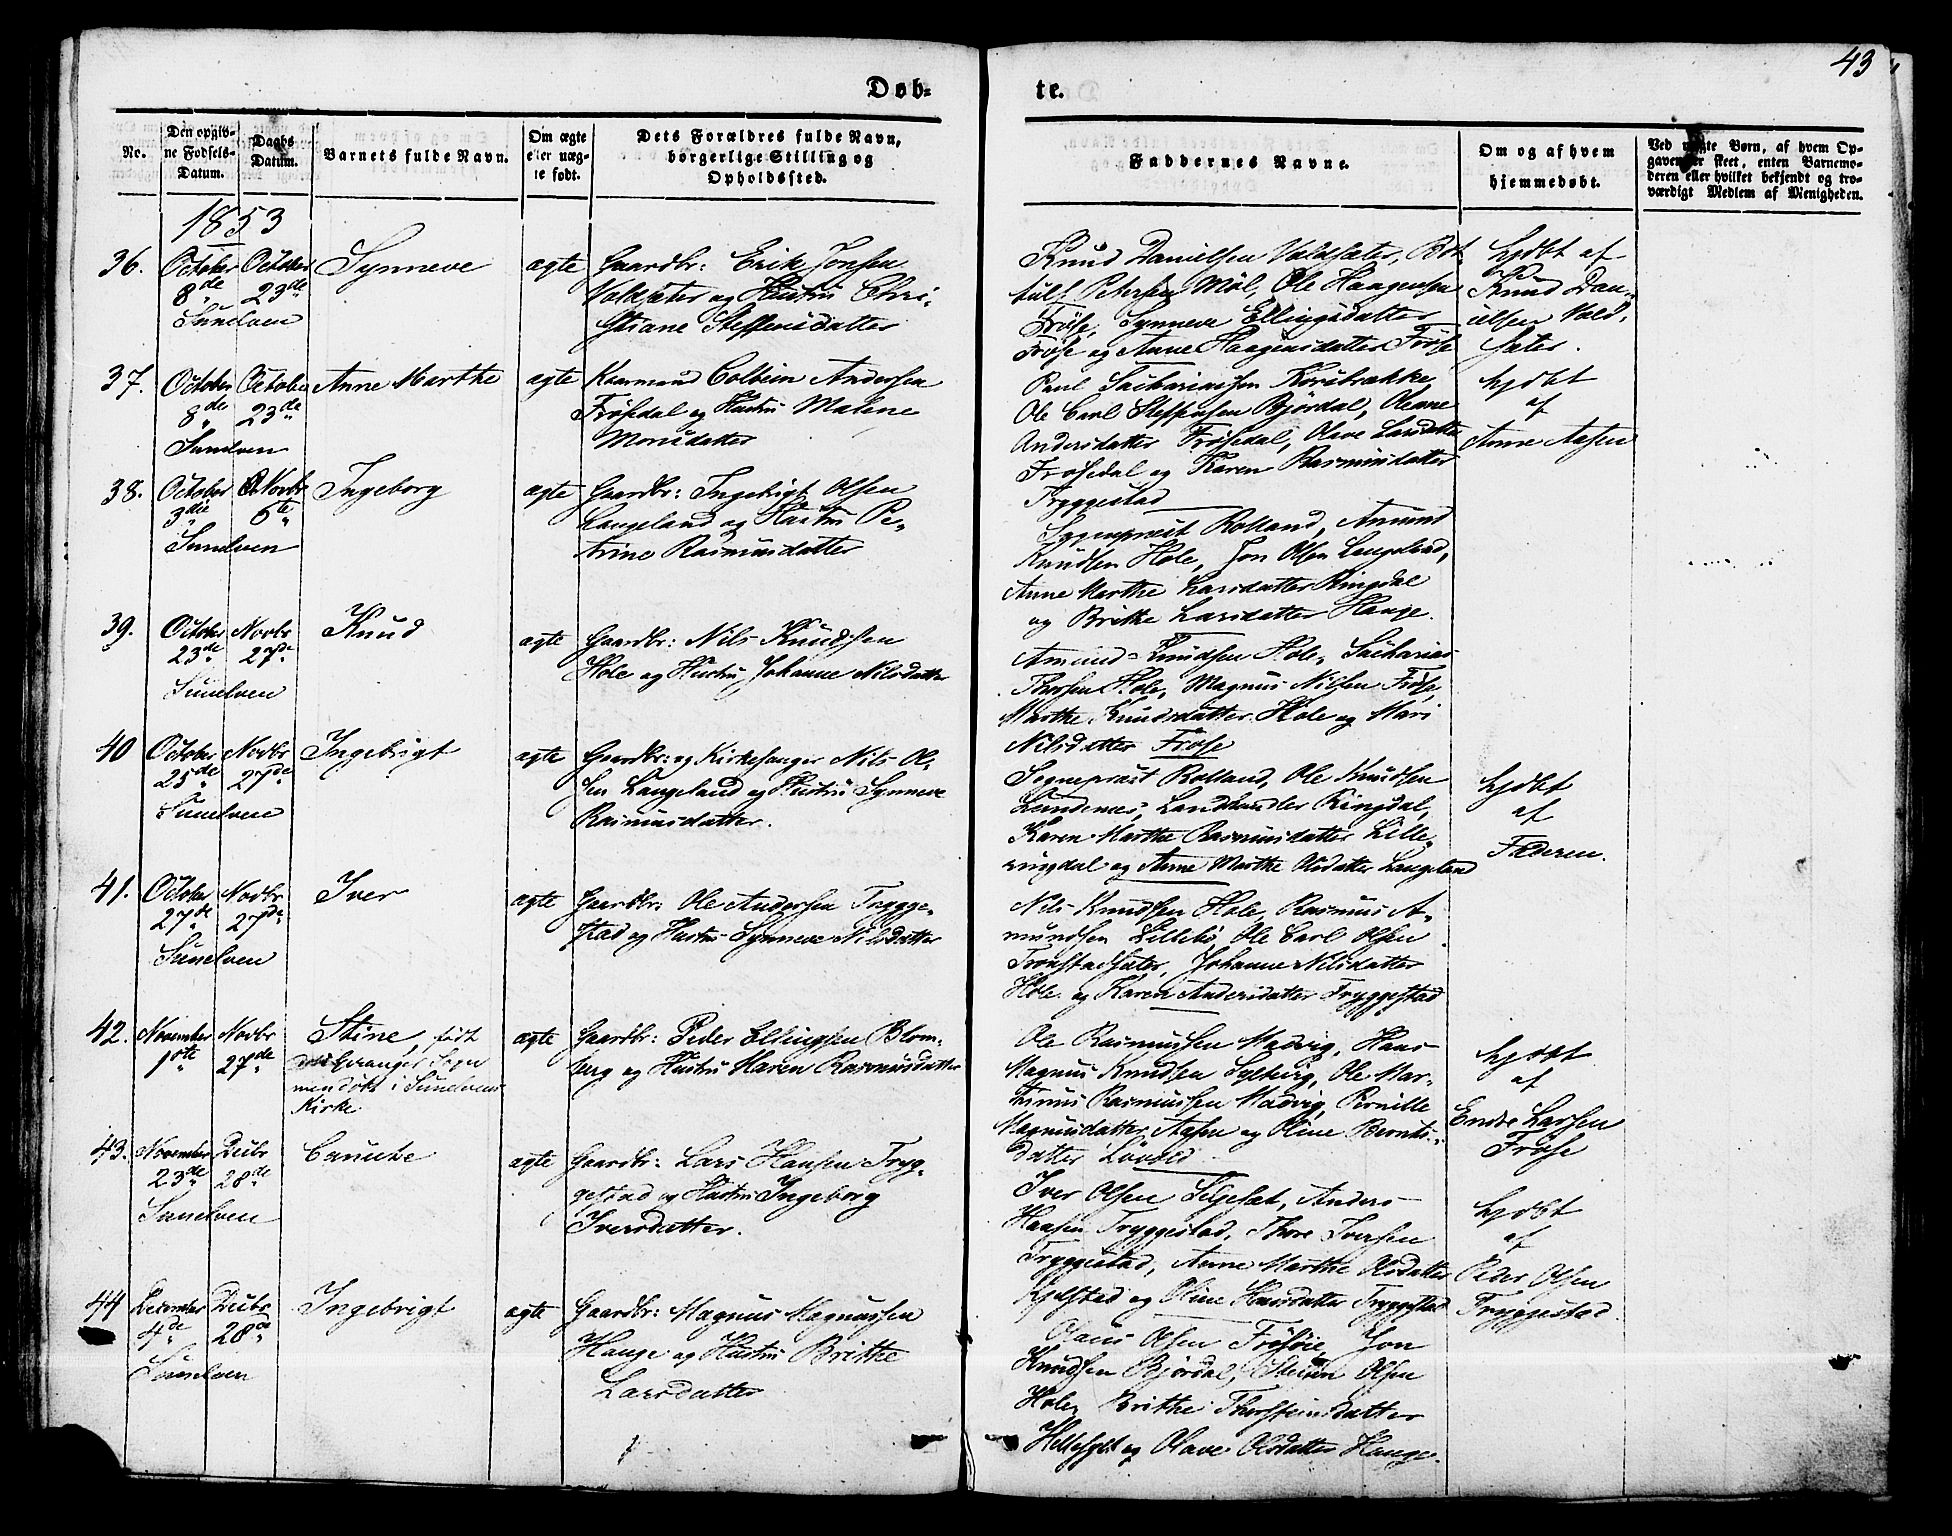 43
Døb- te.
No.
Den opgivne Fødsels-Datum.
Daabs Datum.
Barnets fulde Navn.
Om ægte eller uægte født.
Dets Forældres fulde Navn, borgerlige Stilling og Opholdssted.
Faddernes Navne.
Om og af hvem hjemmedøbt.
Ved uægte Børn, af hvem Opgaven er skeet, enten Barnemoderen eller hvilket bekjendt og troværdigt Medlem af Menigheden.
1853
36. October 8de Sunelven
October 23de
Synneve
ægte
Gaardbr: Erik Jonsen
Valdsæter og Hustru Chri-
stiane Steffensdatter
Knud Danielsen Valdsæter, Bot
tulf Petersen Møl, Ole Haagensen
Frøse, Synneve Ellingsdatter
Frøse og Anne Haagensdatter Frøse
hjdbt af
Knud Dan-
ielsen Vald-
sæter.
37. October 8de Sunelven
October 23de
Anne Marthe
ægte
Colbein Andersen
Frøsdal og Hustru Malene
Monsdatter
Paul Sachariassen Korsbrække,
Ole Carl Steffensen Bjørdal, Oleane
Andersdatter Frøsedal, Olave Larsdatter
Frøsedal og Karen Rasmusdatter
Tryggestad
hjdbt
af
Anne Aasen
38. October 3die Sunelven
Novbr 6te
Ingeborg
ægte
Gaardbr: Ingebrigt Olsen
Langeland og Hustru Pe-
trine Rasmusdatter
Sogneprest Rolland, Amund
Knudsen Hole, Jon Olsen Langeland,
Anne Marthe Larsdatter Ringdal
og Brithe Larsdatter Hauge.
39. October 23de Sunelven
Novbr 27de
Knud
ægte
Gaardbr: Nils Knudsen
Hole og Hustru Johanne Nilsdatter
Amund Knudsen Hole, Sacharias
Thorsen Hole, Magnus Nilsen Frøse,
Marthe Knudsdatter Hole og Mari
Nilsdatter Frøse
40 October 25de Sunelven
Novbr 27de
Ingebrigt
ægte
Gaardbr: og Kirkesanger Nils Ol-
sen Langeland og Hustru Synneve
Rasmusdatter.
Sogneprest Rolland, Ole Knudsen
Lundenes, Landhandler Ringdal,
Karen Marthe Rasmusdatter Lille-
ringdal og Anne Marthe Olsdatter Langeland
hjdbt
af
Faderen.
41. October 27de Sunelven
Novbr 27de
Iver
ægte
Gaardbr: Ole Andersen Trygge-
stad og Hustru Synneve Nilsdatter
Nils Knudsen Hole, Rasmus A-
mundsen Lillebø, Ole Carl Olsen
Tronstadsæter, Johanne Nilsdatter
Hole og Karen Andersdatter Tryggestad
42. November 1ste
Novbr 27de
Stine, født
Geiranger Sogn
men døbt i Sunelvens
Kirke
ægte
Gaardbr: Peder Ellingsen Blom-
berg og Hustru Maren Rasmusdatter
Ole Rasmussen Madvig, Hans
Magnus Knudsen Lyltvig, Ole Mar-
tinus Rasmussen Madvig, Pernille
Magnusdatter Aasen og Oline Bernts-
datter Løvold
hjdbt
af
Endre Larsen
Frøse
43. November 23de Sunelven
Decbr 28de
Canute
ægte
Gaardbr: Lars Hansen Tryg-
gestad og Hustru Ingeborg
Iversdatter.
Iver Olsen Selgesæt, Anders
Hansen Tryggestad, Thore Iversen
Tryggestad, Anne Marthe Olsdatter
Kjelstad og Oline Hansdatter Tryggestad
hjdbt
af
Peder Olsen
Tryggestad.
44 December 4de Sunelven
Decbr 28de
Ingebrigt
ægte
Gaardbr: Magnus Magnussen
Hauge og Hustru Brithe
Larsdatter
Olaus Olsen Frøsøie, Jon
Knudsen Bjørdal, Steinn Olsen
Hole, Brithe Thorsteinsdatter
Hellesylt og Olave Olsdatter Hauge.